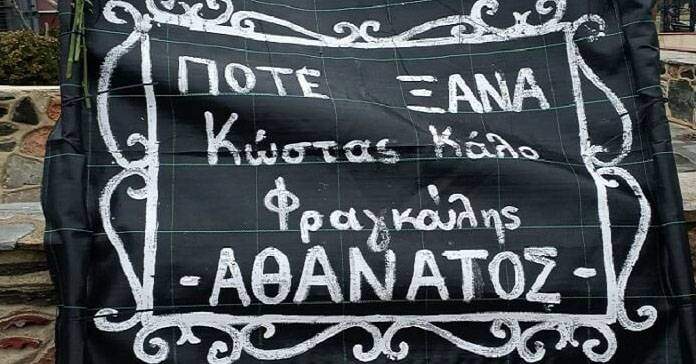 ΠΟΤΕ ΞΑΝΑ
Κώστας Κάλο
Φραγκούλης
- ΑΘΑΝΑΤΟΣ -